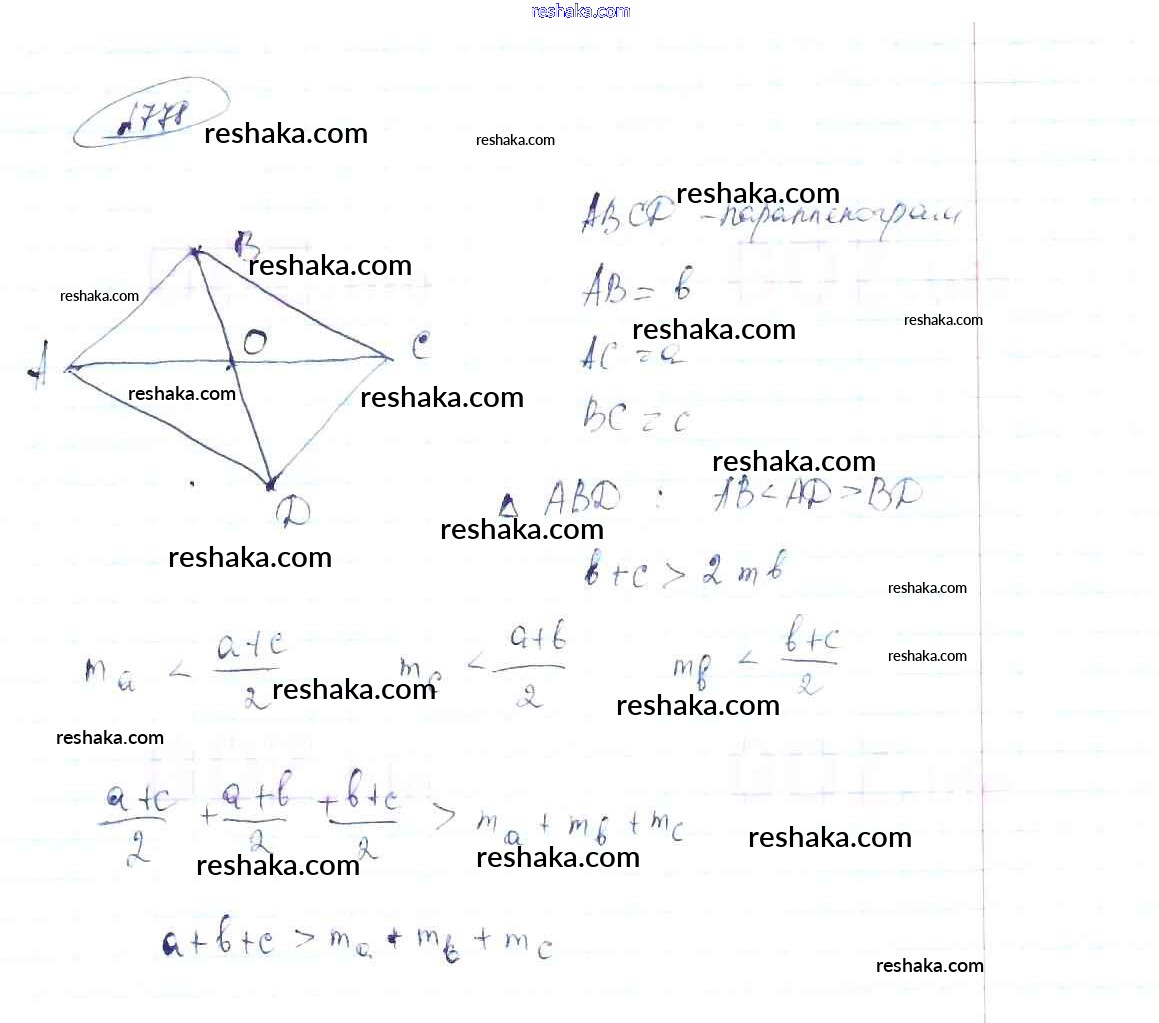 reshaka.com
№778
reshaka.com
reshaka.com
reshaka.com
ABCD - параллелограм
B
reshaka.com
AB = b
reshaka.com
reshaka.com
reshaka.com
A O C
AC = a
reshaka.com
reshaka.com
BC = c
reshaka.com
D
Δ ABD : AB < AD > BD
reshaka.com
reshaka.com
b + c > 2 m b
reshaka.com
m a < a+c/2 m c < a+b/2 m b < b+c/2
reshaka.com
reshaka.com
reshaka.com
reshaka.com
a+c/2 + a+b/2 + b+c/2 > m a + m b + m c
reshaka.com
reshaka.com
reshaka.com
a + b + c > m a + m b + m c
reshaka.com